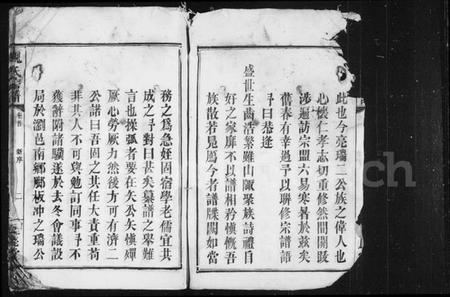 此也今亮瑞二公族之偉人也
心懷仁孝志切重修然間關跋
涉遍訪宗盟六易寒暑於茲矣
舊春有幸過予以聯修宗譜語
予曰恭逢
盛世生齒浩繁雖山陬聚族詩禮自
好之家靡不以譜相矜慎慨吾
族散若晃焉今者譜牒闕如當
務之為急姪固宿學老儒宜共
成之予對曰甚矣纂譜之舉難
言也操弧者要在矢公矢慎殫
厥心勞厥力然後方可有濟二
公諾曰吾固之其任大責重苟
非其人不可與勉訂同事予不
獲辭附諸驥遂於去冬會議設
局於瀏邑南鄉鄺板沖之瑞公
氏譜
卷首
新序